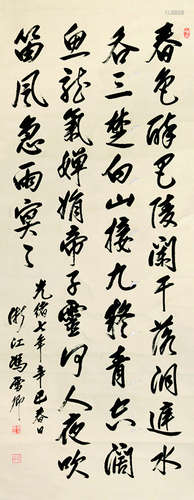 春色醉巴陵闌干落洞庭水
吞三楚白山接九疑青空闊
魚龍氣嬋娟帝子靈何人夜吹
笛風急雨冥々
光緒七年辛巳春日
浙江馮卿